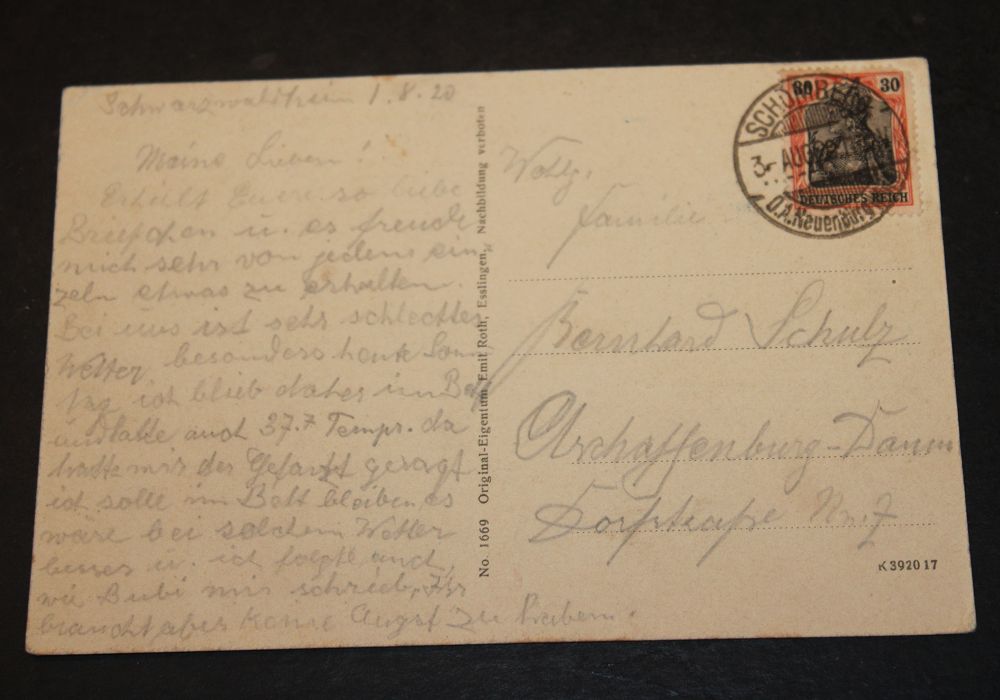 Schwarzwaldheim 1.8.20
Meine Lieben!
Erhielt Eure so liebe
Briefchen u. es freute
mich sehr von jedem ein
zeln etwas zu erhalten.
Bei uns ist sehr schlechtes
Wetter besonders heute Sonn
tag ich blieb daher im Bett
und hatte auch 37.7 Tempr. da
hatte mir der gesagt
ich solle im Bett bleiben, es
wäre bei solchem Wetter
besser u. ich folgte auch,
wie Bubi mir schrieb, Ihr
braucht aber keine Angst zu haben.
No. 1669 Original-Eigentum Emil Roth, Esslingen, Nachbildung verboten
30 30
DEUTSCHES REICH
SCHÖMBERG
3 AUG
O.A. Neuenbürg
Wohlg.
Familie
Bernhard Schulz
Aschaffenburg-Damm
Dorfstraße Nr. 7
K 3920 17